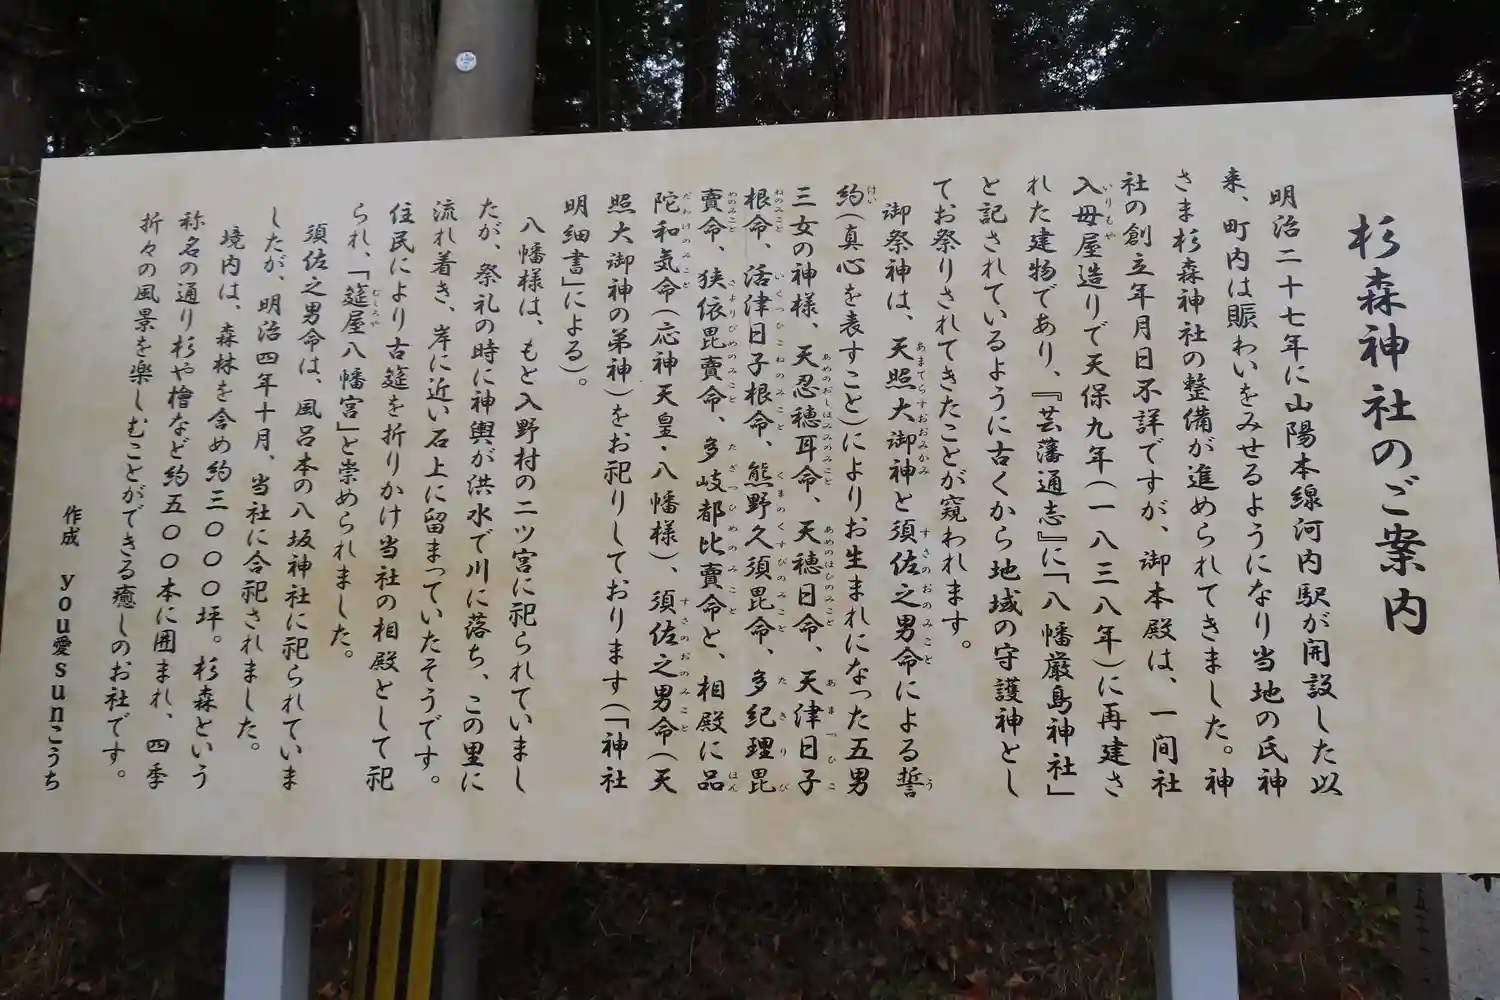 杉森神社のご案内
明治二十七年に山陽本線河内駅が開設した以
来、町内は賑わいをみせるようになり当地の氏神
さま杉森神社の整備が進められてきました。神
社の創立年月日不詳ですが、御本殿は、一間社
入母屋造りで天保九年(一八三八年)に再建さ
れた建物であり、『芸藩通志』に「八幡厳島神社」
と記されているように古くから地域の守護神とし
てお祭りされてきたことが窺われます。
御祭神は、天照大御神と須佐之男命による誓
約(真心を表すこと)によりお生まれになった五男
三女の神様、天忍穂耳命、天穂日命、天津日子
根命、活津日子根命、熊野久須毘命、多紀理毘
賣命、狭依毘賣命、多岐都比賣命と、相殿に品
陀和気命(応神天皇・八幡様)、須佐之男命(天
照大御神の弟神)をお祀りしております(「神社
明細書」による)。
八幡様は、もと入野村の二ツ宮に祀られていまし
たが、祭礼の時に神輿が洪水で川に落ち、この里に
流れ着き、岸に近い石上に留まっていたそうです。
住民により古筵を折りかけ当社の相殿として祀
られ、「筵屋八幡宮」と崇められました。
須佐之男命は、風呂本の八坂神社に祀られていま
したが、明治四年十月、当社に合祀されました。
境内は、森林を含め約三〇〇〇坪。杉森という
称名の通り杉や檜など約五〇〇本に囲まれ、四季
折々の風景を楽しむことができる癒しのお社です。
作成　you愛sunこうち